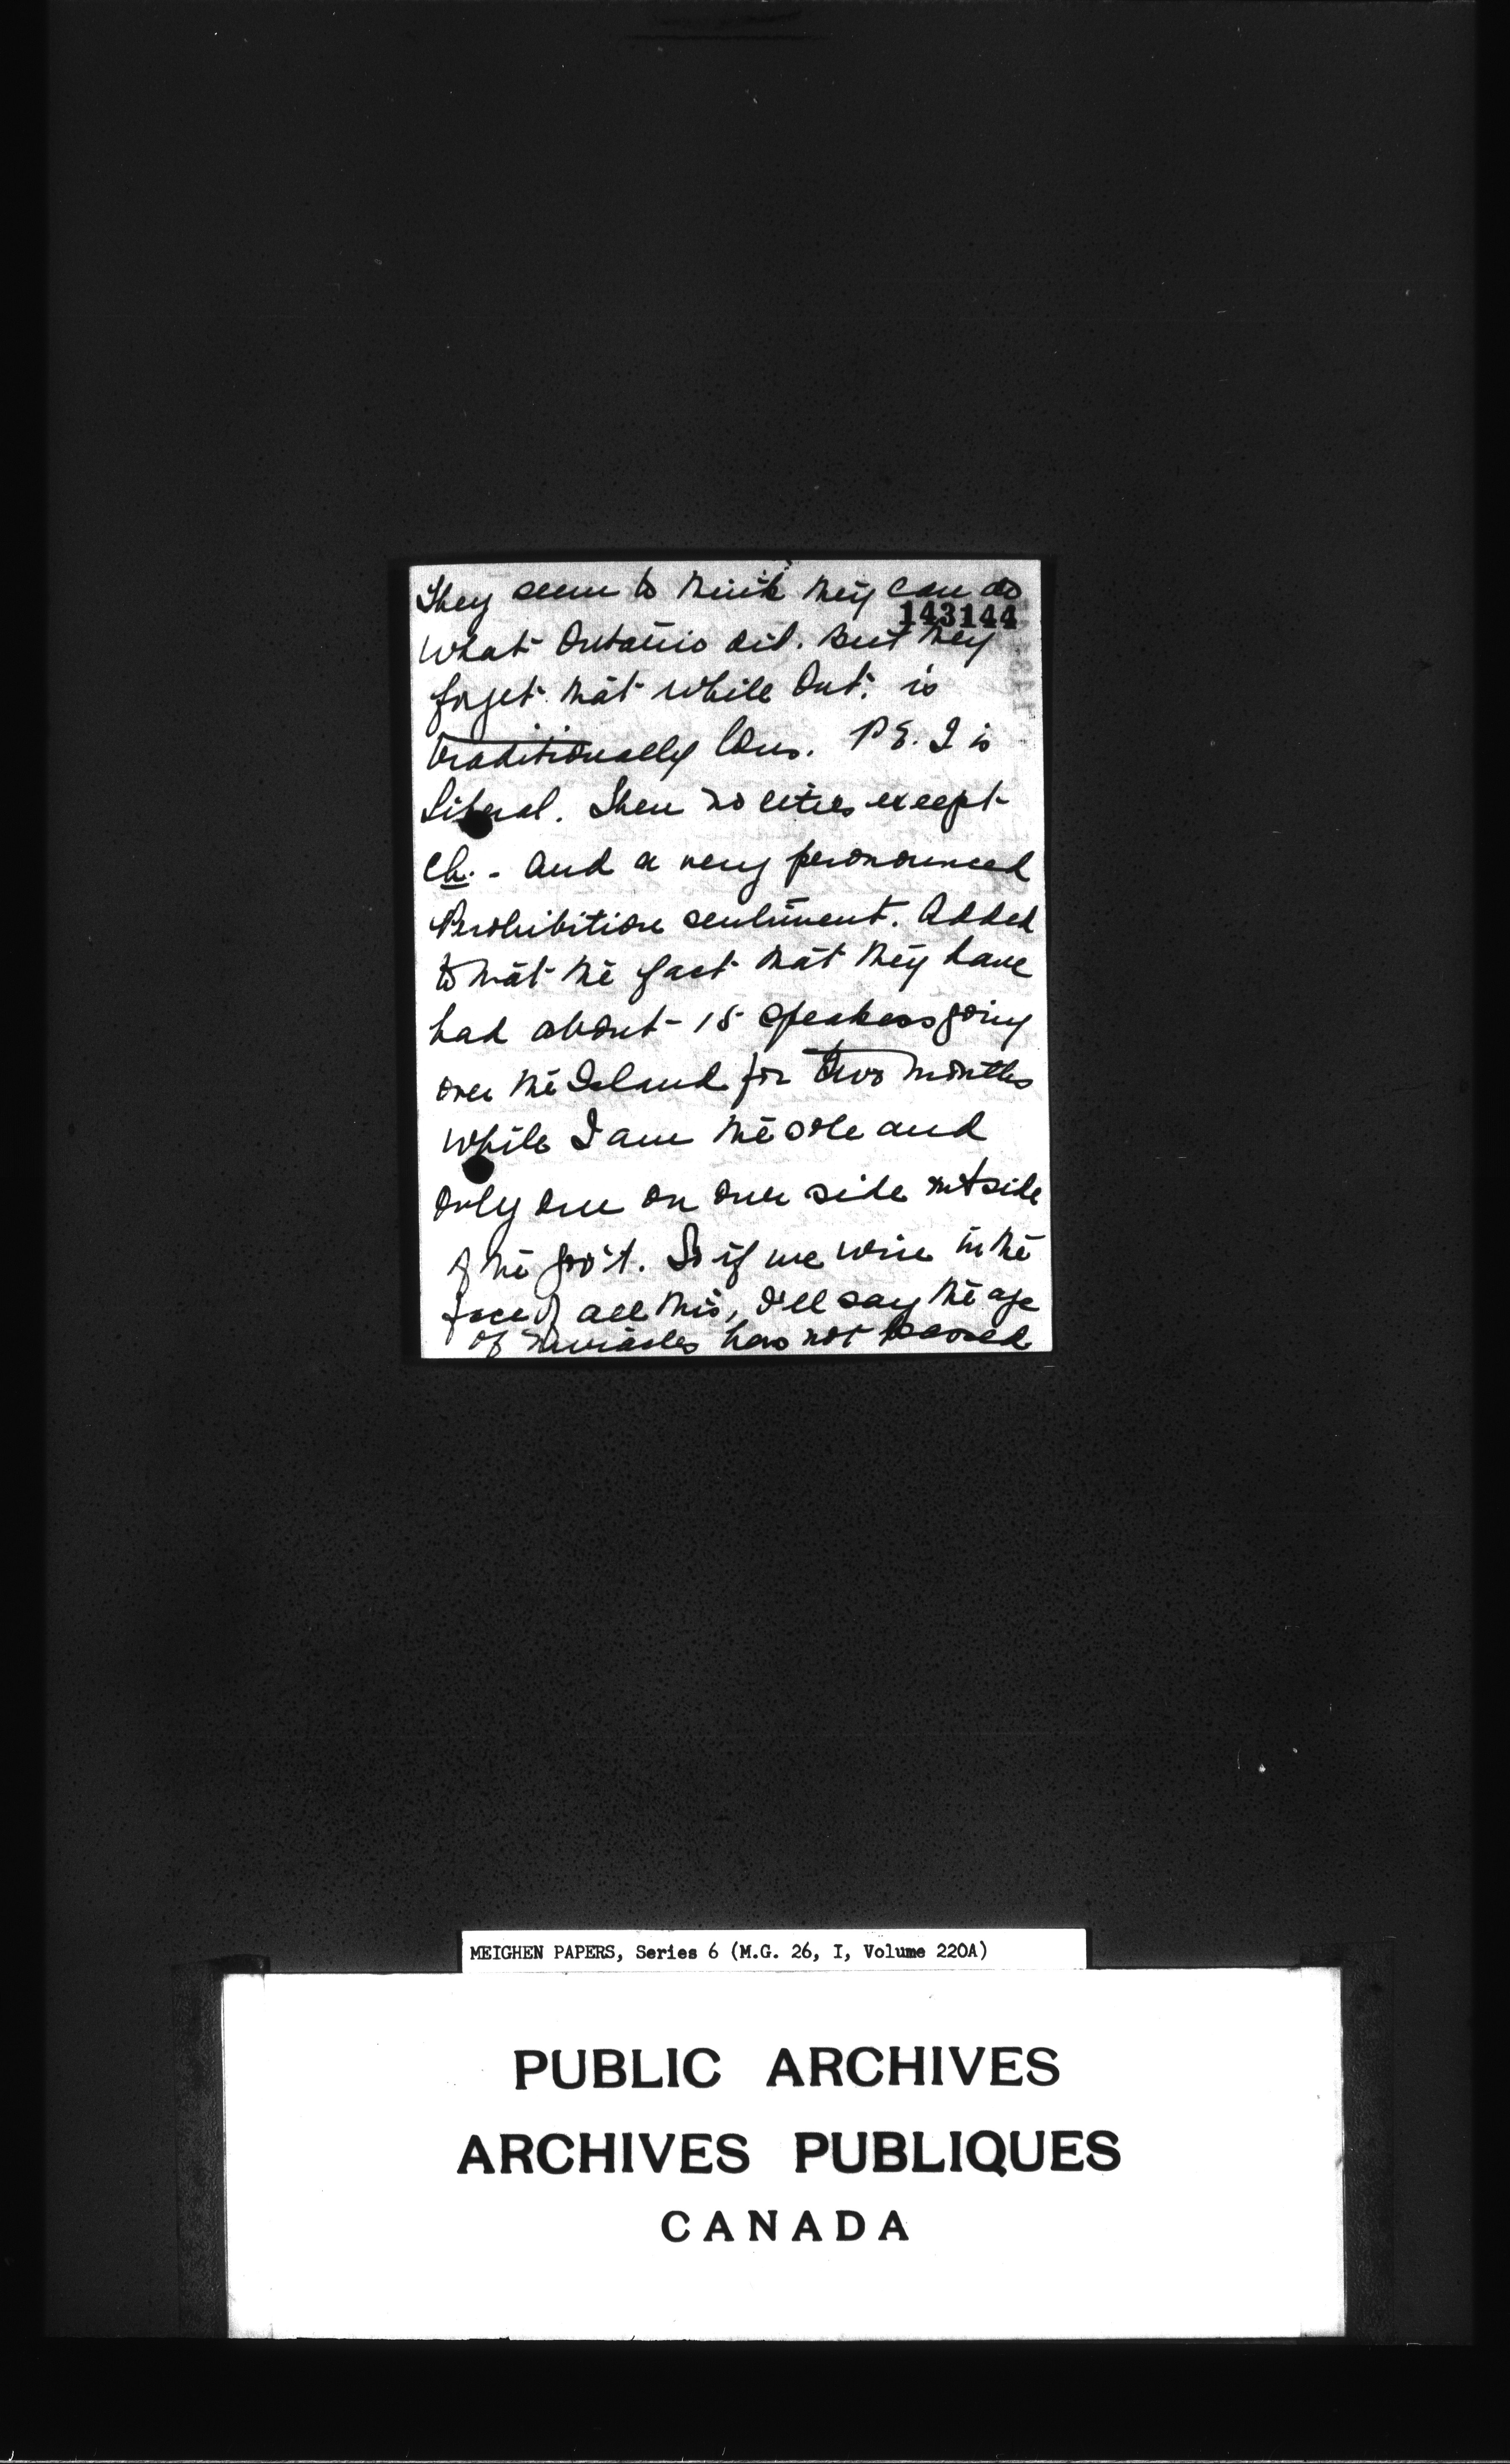 They seem to think they can do
143144
what Ontario did. But they
forget that while Ont. is
traditionally Cons. P.E.I is
Liberal. Then no cities except
Ch. - and a very pronounced
Prohibition sentiment. Added
to that the fact that they have
had about 15 speakers going
over the Island for two months
while I am the sole and
only one on our side outside
of the gov't. So if we win in the
face of all this, I'll say the age
of miracles has not passed
MEIGHEN PAPERS, Series 6 (M.G. 26, I, Volume 220A)
PUBLIC ARCHIVES
ARCHIVES PUBLIQUES
CANADA